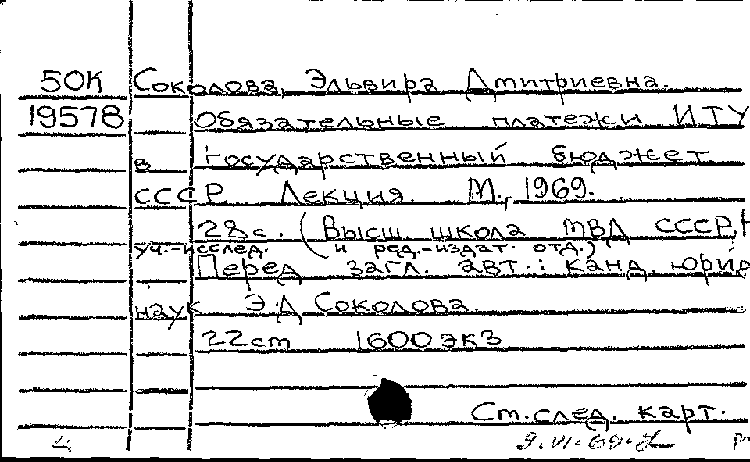 50К Соколова, Эльвира Дмитриевна.
19578 Обязательные платежи ИТУ
в государственный бюджет
СССР. Лекция. М., 1969.
28с. (Высш. школа МВД СССР,
уч.-исслед. и ред.-издат. отд.)
Перед загл. авт.: канд. юрид
наук Э.Д Соколова
22cm 1600 экз
Ст. след. карт.
9.VI.69